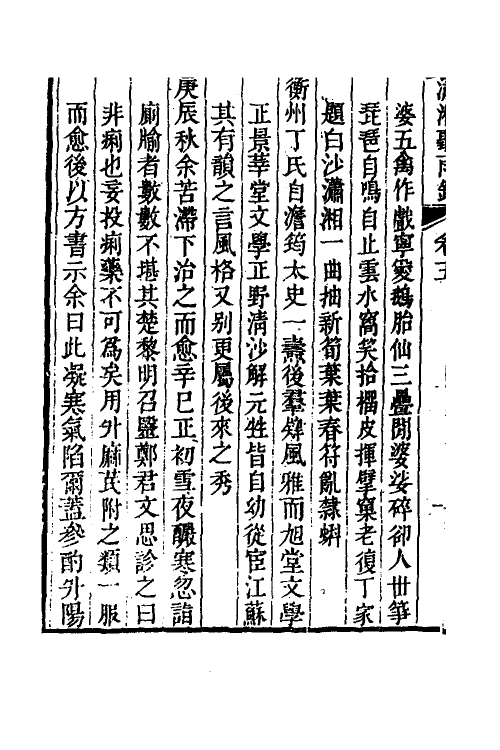 瀟湘聽雨錄 卷五
婆五禽作戲寧夔鵝胎仙三疊閒婆娑碎卻人世箏
琵琶自鳴自止雲水窩笑拾櫺皮揮擘窠老復丁家
題白沙瀟湘一曲抽新筍葉葉春符亂隸蝌
衡州丁氏自澹筠太史一燾後羣雖風雅而旭堂文學
正景莘堂文學正野清沙解元甡皆自幼從宦江蘇
其有韻之言風格又別更屬後來之秀
庚辰秋余苦滯下治之而愈辛巳正初雪夜釅寒忽詣
廁牏者數數不堪其楚黎明召毉鄭君文思診之曰
非痢也妄投痢藥不可爲矣用升麻芪附之類一服
而愈後以方書示余曰此凝寒氣陷爾蓋參酌升陽